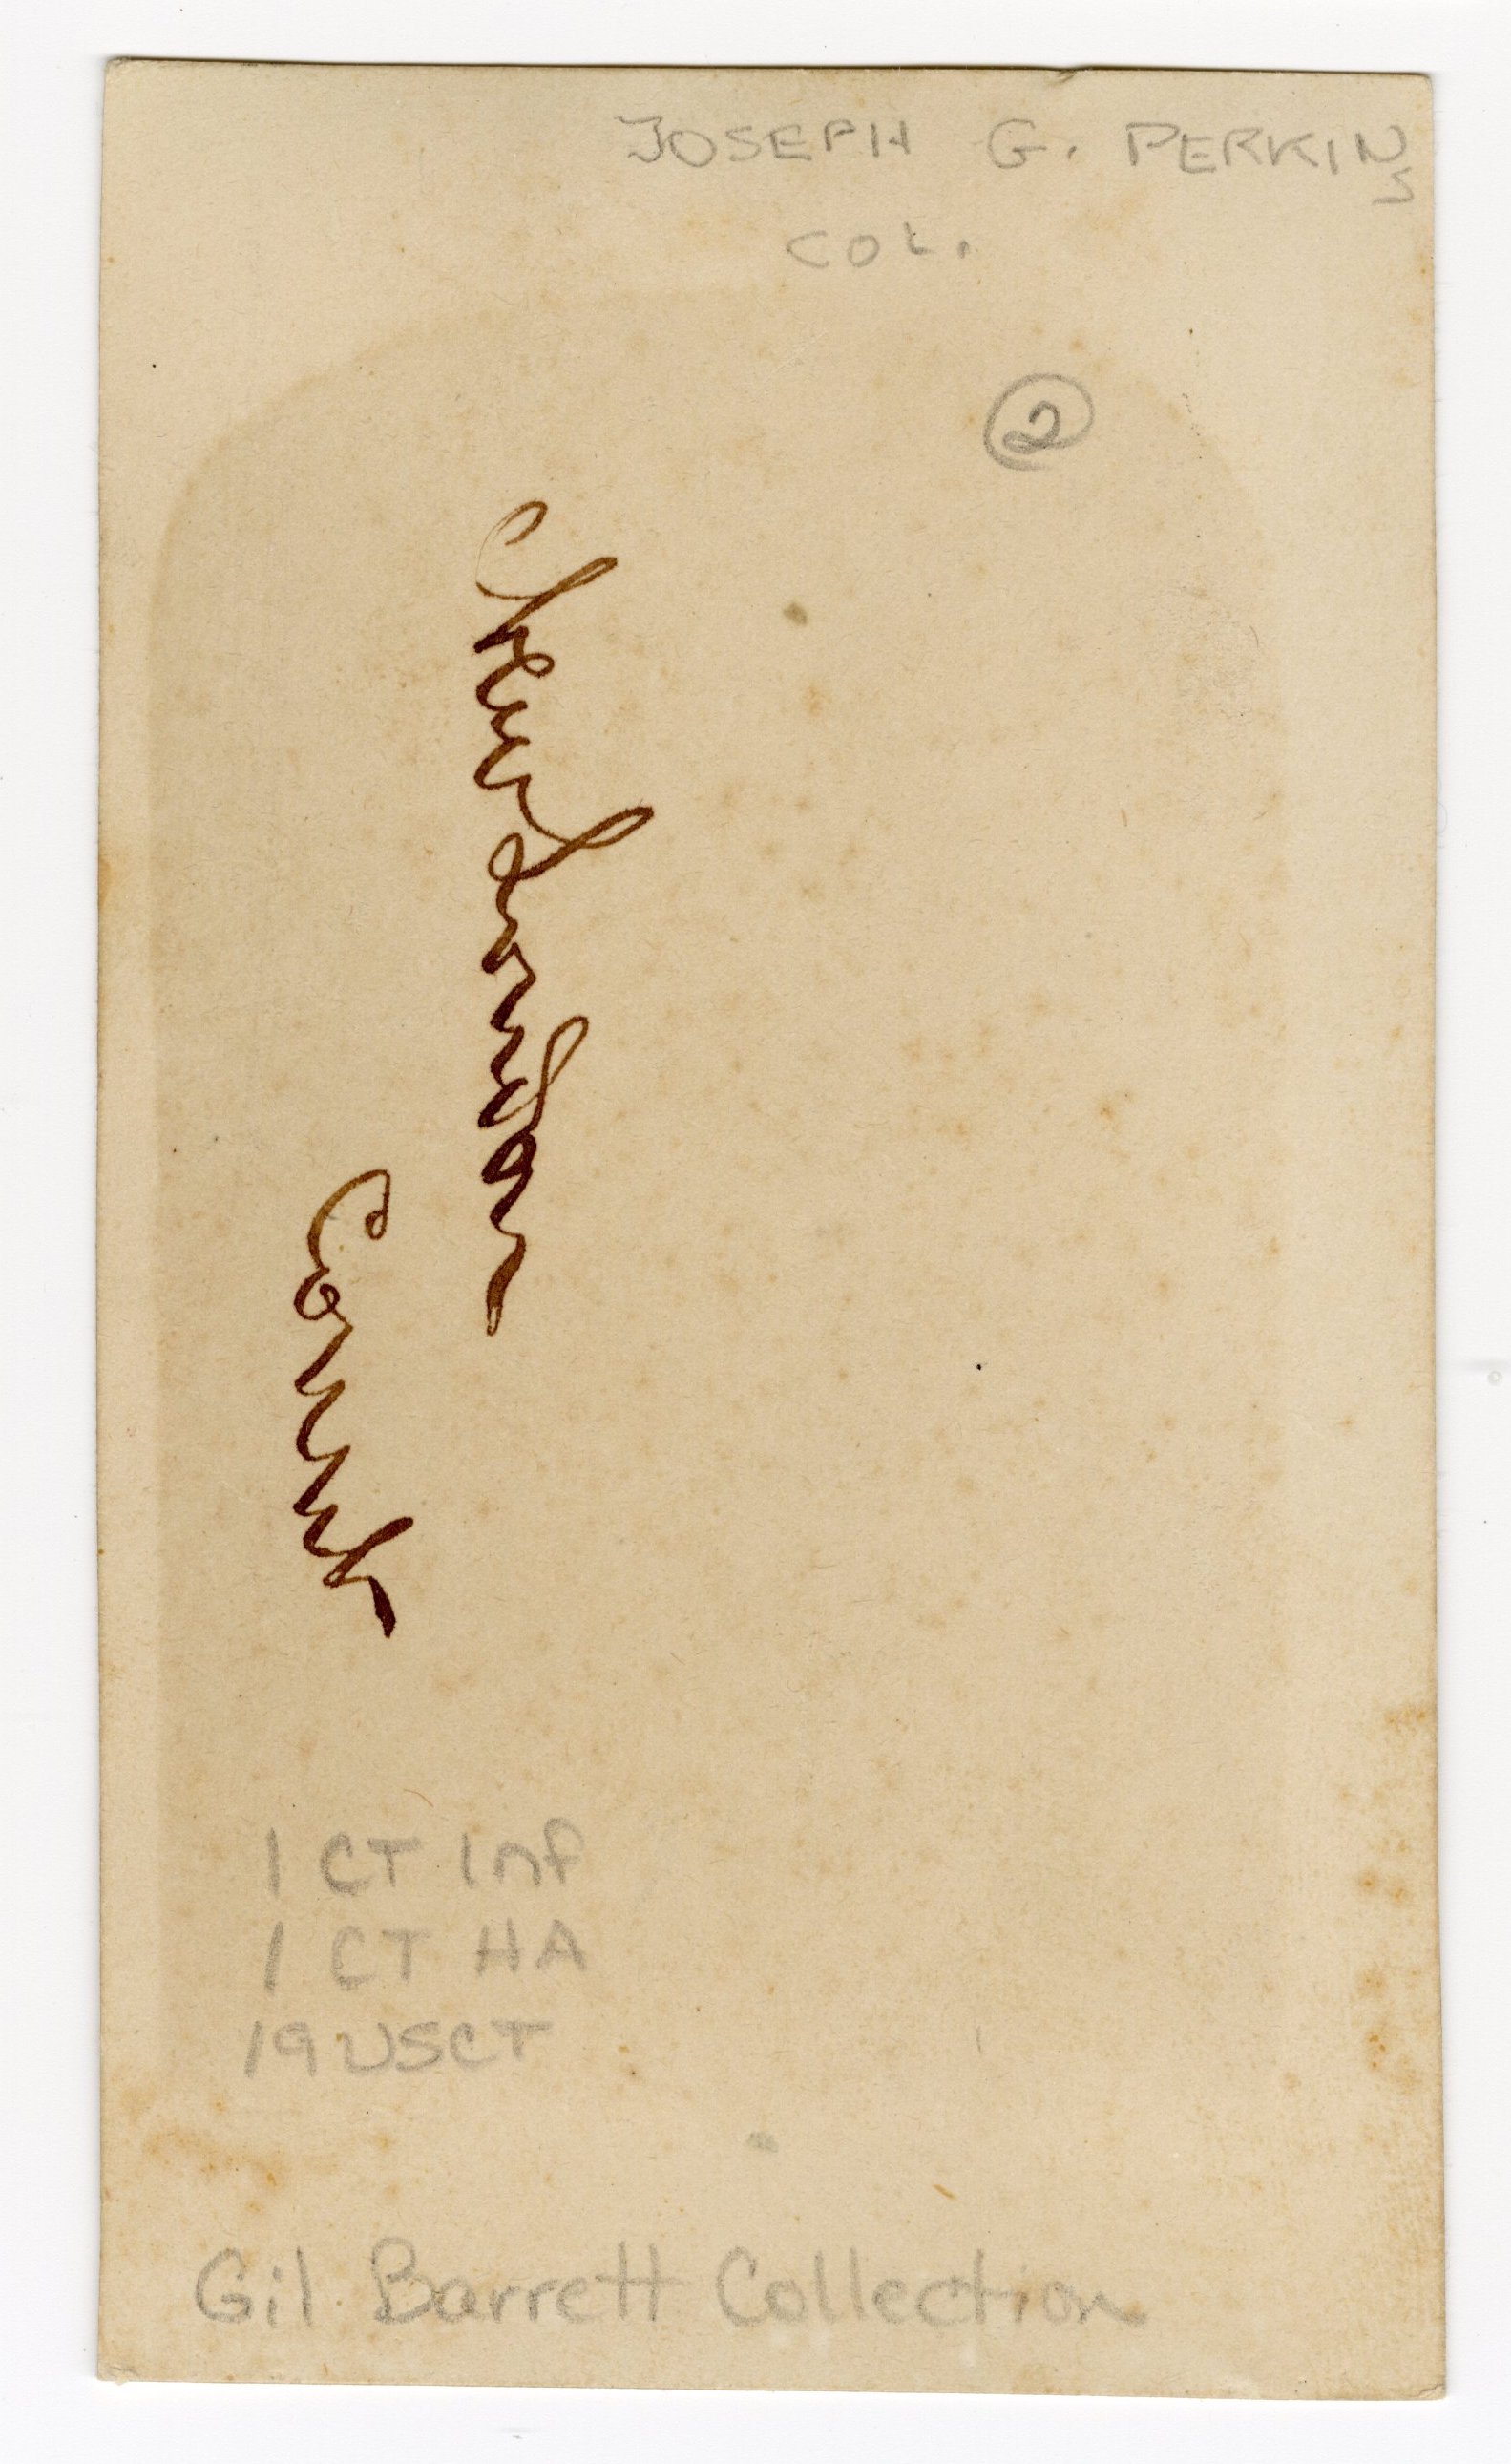 JOSEPH G. PERKINS
COL.
2
New London
Conn
1 CT Inf
1 CT HA
19 USCT
Gil Barrett Collection